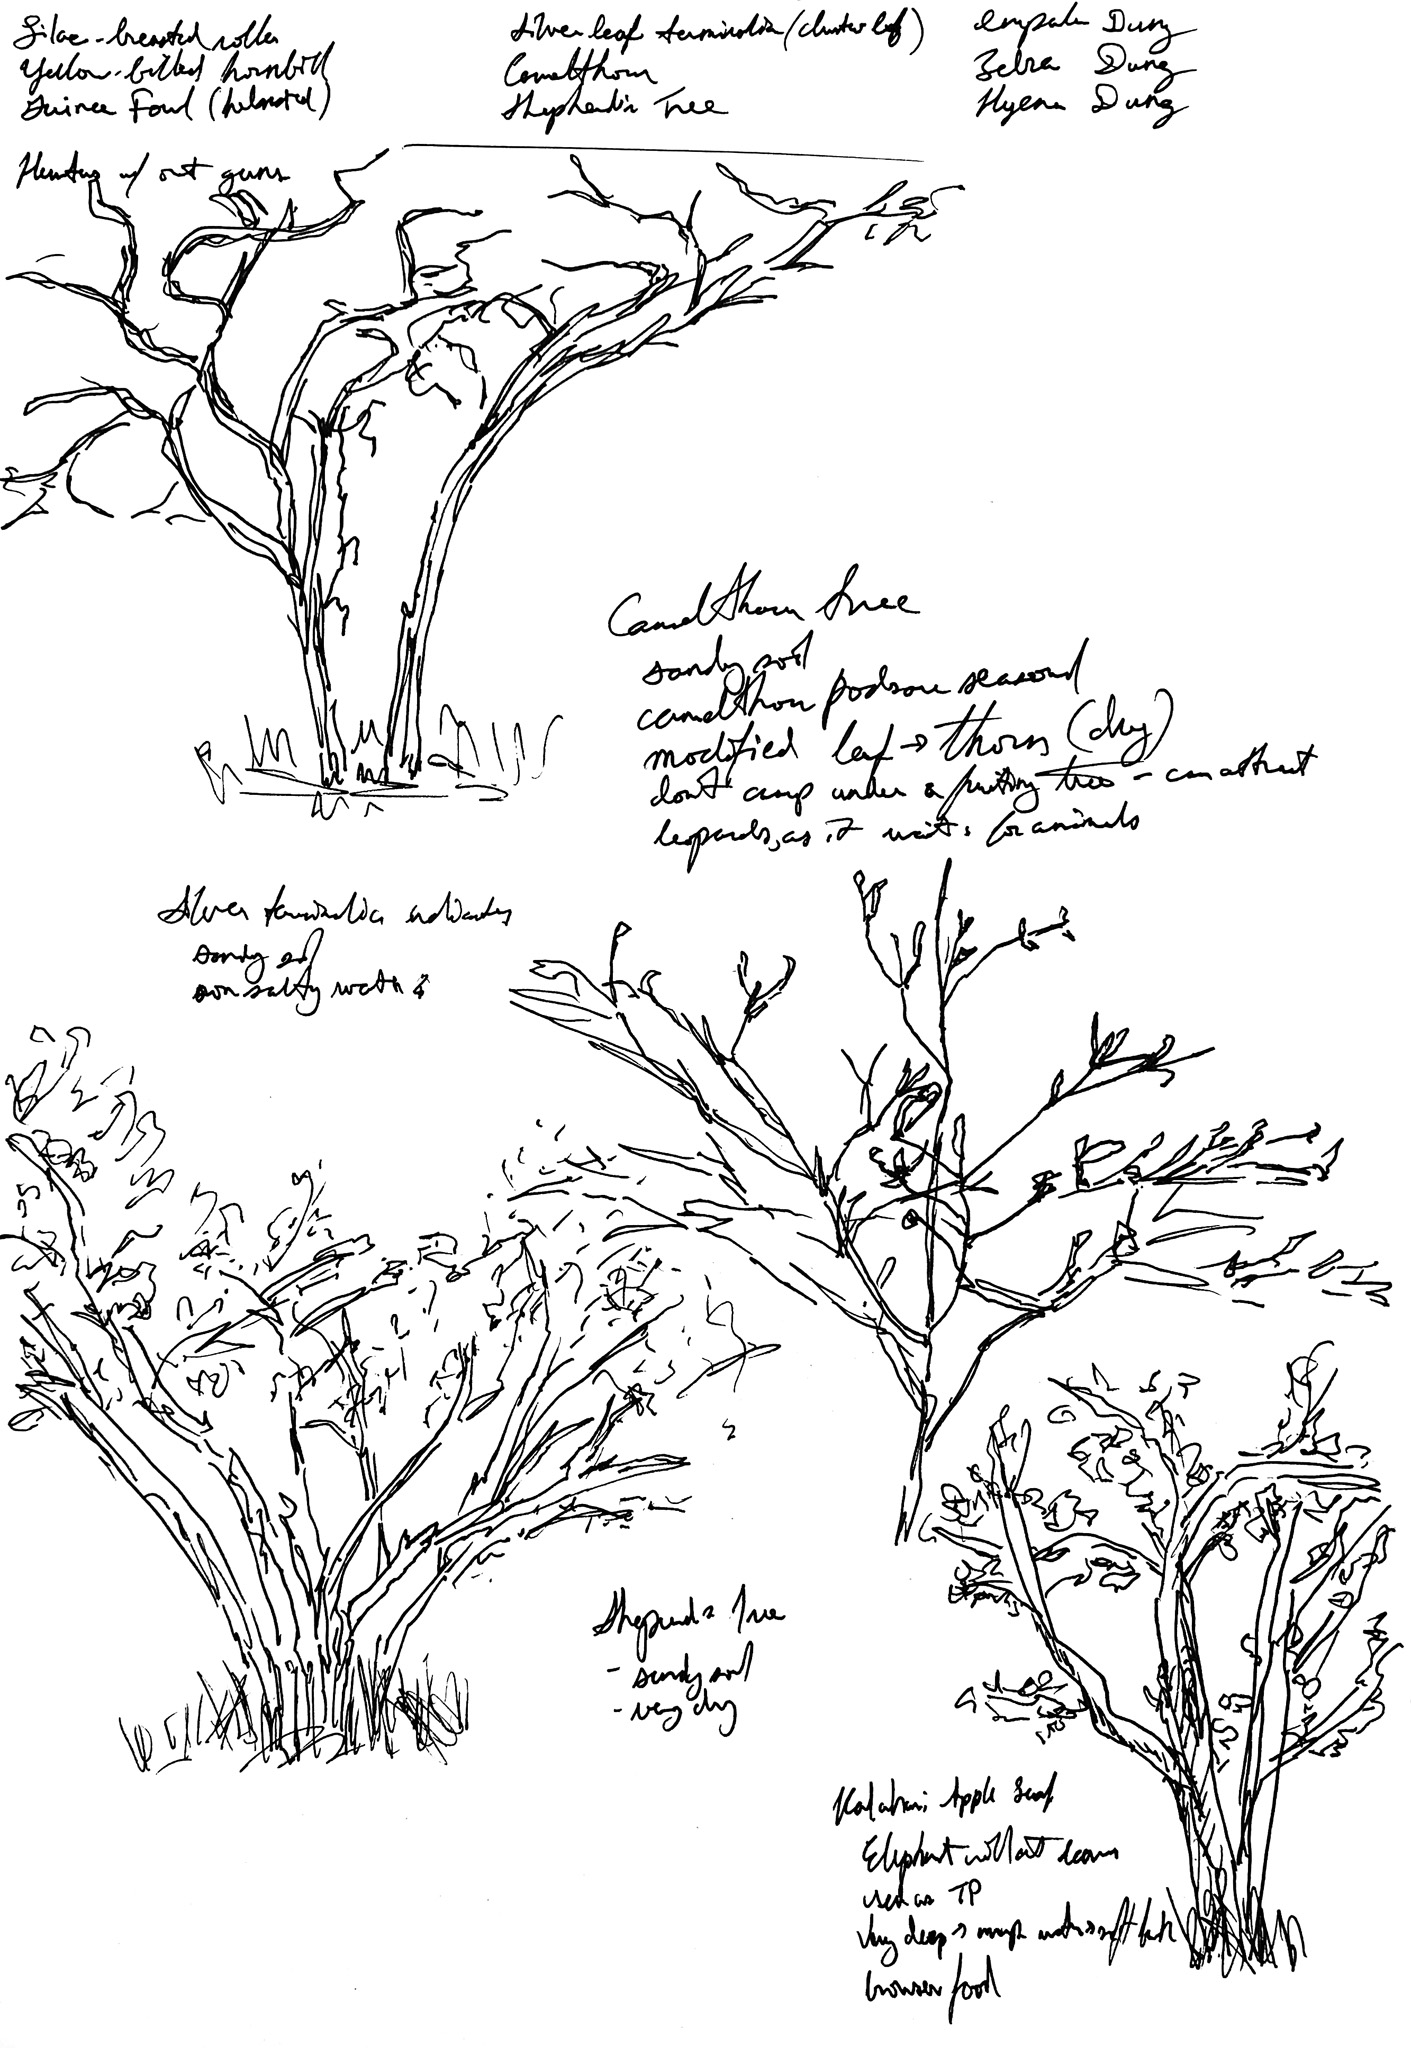 Lilac-breasted roller
Yellow-billed hornbill
Guinea Fowl (helmeted)
Silver leaf terminalia (cluster leaf)
Camelthorn
Shepherd's Tree
Impala Dung
Zebra Dung
Hyena Dung
Hunting w/out guns
Camelthorn Tree
sandy soil
camelthorn pods are seasonal
modified leaf → thorns (dry)
don't camp under a fruiting tree - can attract
leopards, as it waits for animals
Silver terminalia indicates
sandy soil
non salty water
Shepherds Tree
- sandy soil
- very dry
Kalahari Apple Leaf
Elephant will eat leaves
used as TP
Very deep → water soft
browser food